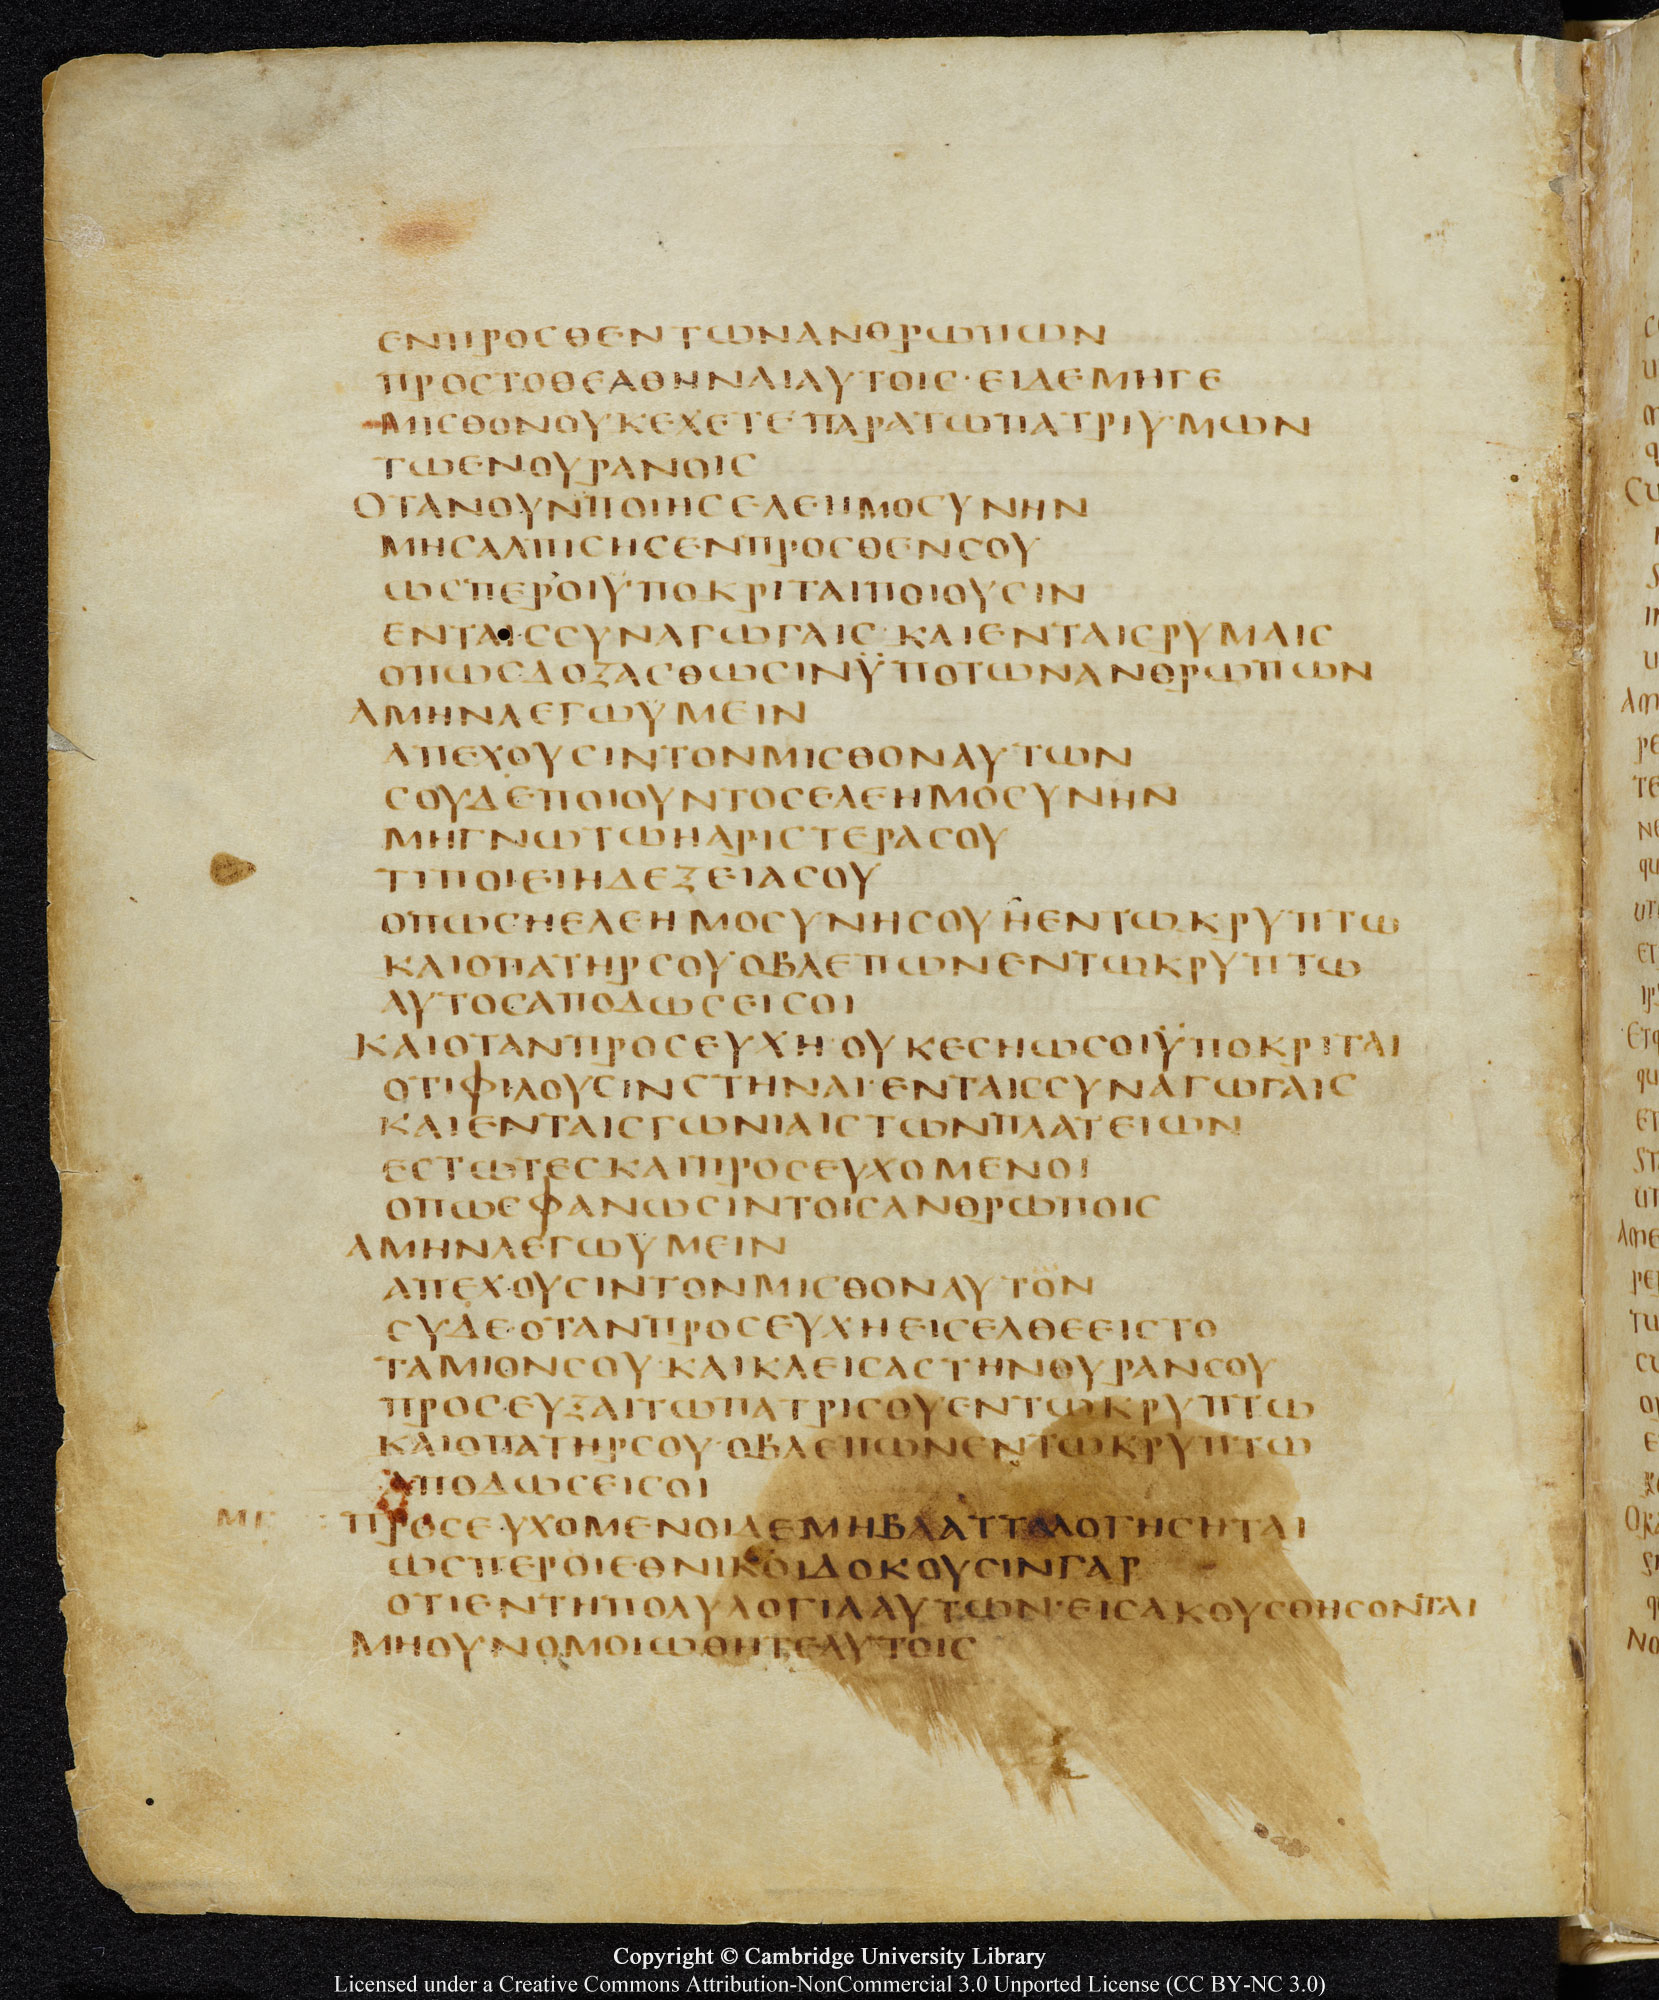 ΕΝΠΡΟСΘΕΝΤΩΝΑΝΘΡΩΠΩΝ
ΠΡΟСΤΟΘΕΑΘΗΝΑΙΑΥΤΟΙС·ΕΙΔΕΜΗΓΕ
ΜΙСΘΟΝΟΥΚΕΧΕΤΕΠΑΡΑΤΩΠΑΤΡΙΥΜΩΝ
ΤΩΕΝΟΥΡΑΝΟΙС
ΟΤΑΝΟΥΝΠΟΙΗСΕΛΕΗΜΟСΥΝΗΝ
ΜΗСΑΛΠΙСΗСΕΝΠΡΟСΘΕΝСΟΥ
ΩСΠΕΡΟΙΥΠΟΚΡΙΤΑΙΠΟΙΟΥСΙΝ
ΕΝΤΑΙССΥΝΑΓΩΓΑΙС·ΚΑΙΕΝΤΑΙСΡΥΜΑΙС
ΟΠΩСΔΟΞΑСΘΩСΙΝΫΠΟΤΩΝΑΝΘΡΩΠΩΝ
ΑΜΗΝΛΕΓΩΥΜΕΙΝ
ΑΠΕΧΟΥСΙΝΤΟΝΜΙСΘΟΝΑΥΤΩΝ
СΟΥΔΕΠΟΙΟΥΝΤΟСΕΛΕΗΜΟСΥΝΗΝ
ΜΗΓΝΩΤΩΗΑΡΙСΤΕΡΑСΟΥ
ΤΙΠΟΙΕΙΗΔΕΞΕΙΑСΟΥ
ΟΠΩСΗΕΛΕΗΜΟСΥΝΗСΟΥΗΕΝΤΩΚΡΥΠΤΩ
ΚΑΙΟΠΑΤΗΡСΟΥΟΒΛΕΠΩΝΕΝΤΩΚΡΥΠΤΩ
ΑΥΤΟСΑΠΟΔΩСΕΙСΟΙ
ΚΑΙΟΤΑΝΠΡΟСΕΥΧΗ·ΟΥΚΕСΗΩСΟΙΫΠΟΚΡΙΤΑΙ
ΟΤΙΦΙΛΟΥСΙΝСΤΗΝΑΙ·ΕΝΤΑΙССΥΝΑΓΩΓΑΙС
ΚΑΙΕΝΤΑΙСΓΩΝΙΑΙСΤΩΝΠΛΑΤΕΙΩΝ
ΕСΤΩΤΕСΚΑΙΠΡΟСΕΥΧΟΜΕΝΟΙ
ΟΠΩСΦΑΝΩСΙΝΤΟΙСΑΝΘΡΩΠΟΙС
ΑΜΗΝΛΕΓΩΥΜΕΙΝ
ΑΠΕΧΟΥСΙΝΤΟΝΜΙСΘΟΝΑΥΤΟΝ
СΥΔΕ·ΟΤΑΝΠΡΟСΕΥΧΗΕΙСΕΛΘΕΕΙСΤΟ
ΤΑΜΙΟΝСΟΥ·ΚΑΙΚΛΕΙСΑСΤΗΝΘΥΡΑΝСΟΥ
ΠΡΟСΕΥΞΑΙΤΩΠΑΤΡΙСΟΥΕΝΤΩΚΡΥΠΤΩ
ΚΑΙΟΠΑΤΗΡСΟΥ·ΟΒΛΕΠΩΝΕΝΤΩΚΡΥΠΤΩ
ΑΠΟΔΩСΕΙСΟΙ
ΠΡΟСΕΥΧΟΜΕΝΟΙΔΕΜΗΒΛΑΤΤΑΛΟΓΗСΗΤΑΙ
ΩСΠΕΡΟΙΕΘΝΙΚΟΙΔΟΚΟΥСΙΝΓΑΡ
ΟΤΙΕΝΤΗΠΟΛΥΛΟΓΙΑΑΥΤΩΝ·ΕΙСΑΚΟΥСΘΗСΟΝΤΑΙ
ΜΗΟΥΝΟΜΟΙΩΘΗΤΕΑΥΤΟΙС
Copyright © Cambridge University Library
Licensed under a Creative Commons Attribution-NonCommercial 3.0 Unported License (CC BY-NC 3.0)